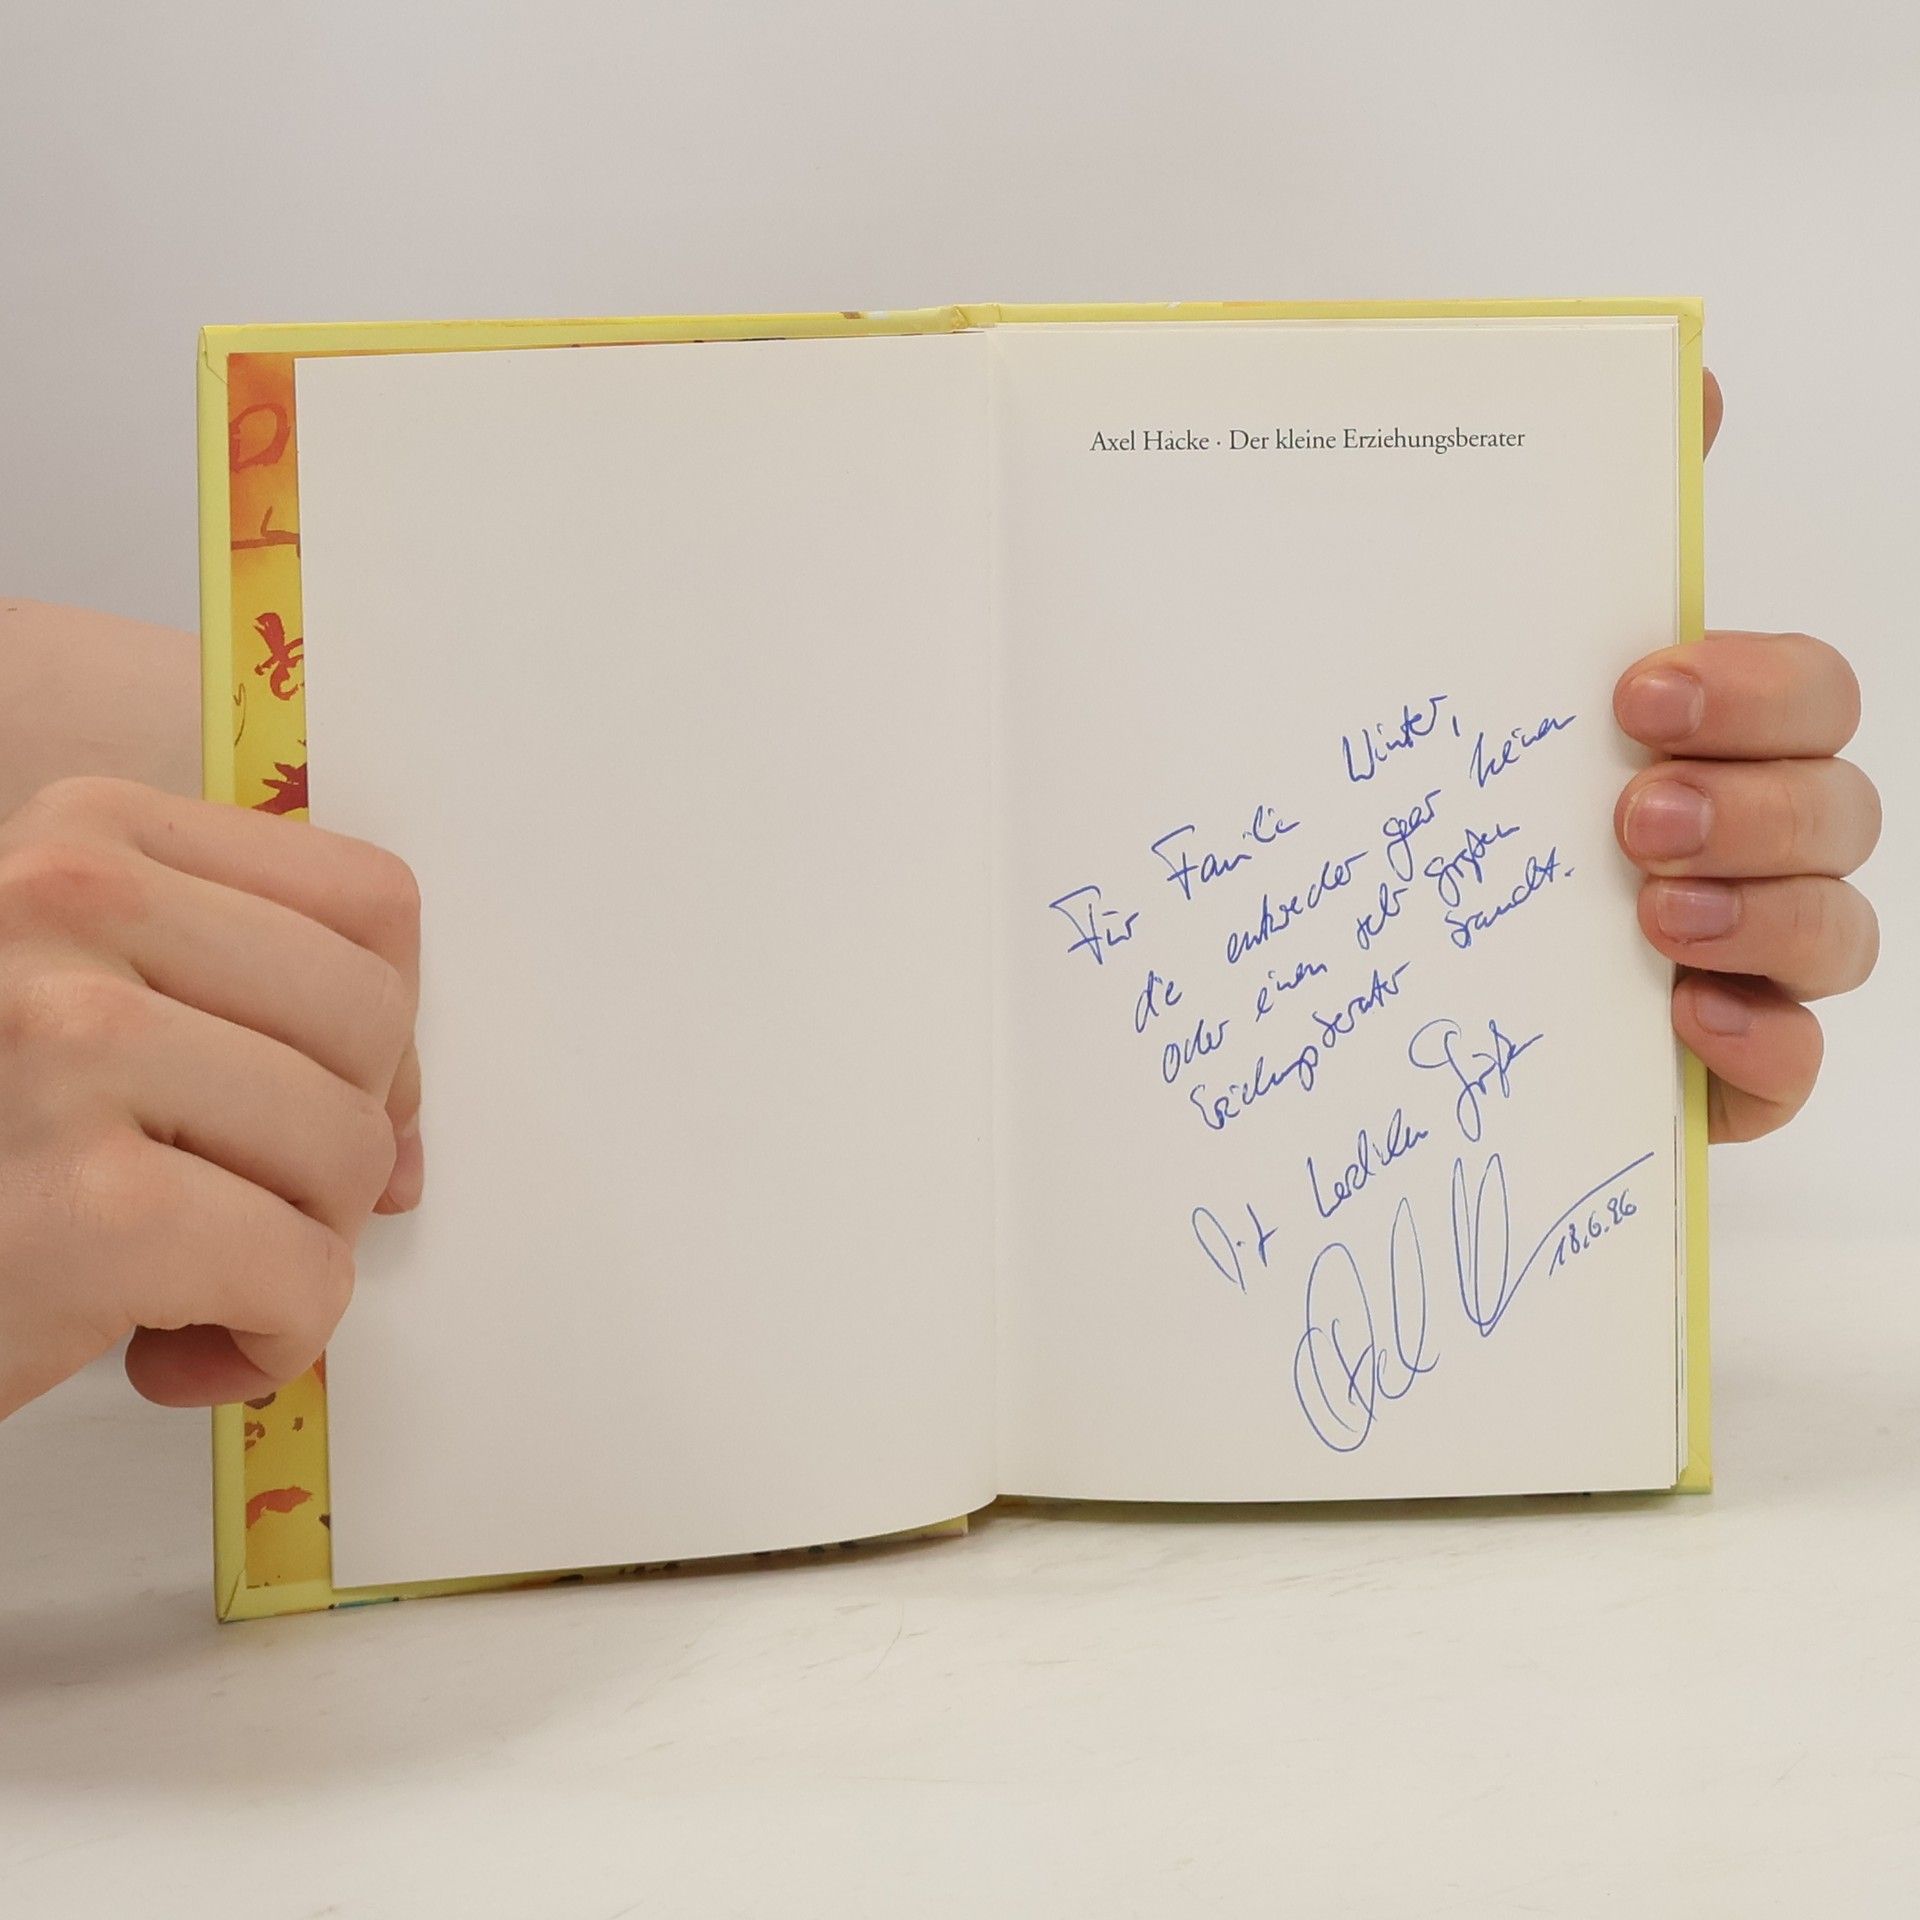 Axel Hacke · Der kleine Erziehungsberater
Für Familie Winter,
die entweder gar keinen
oder einen sehr großen
Erziehungsberater braucht.
Mit herzlichen Grüßen
Axel H
18.6.96